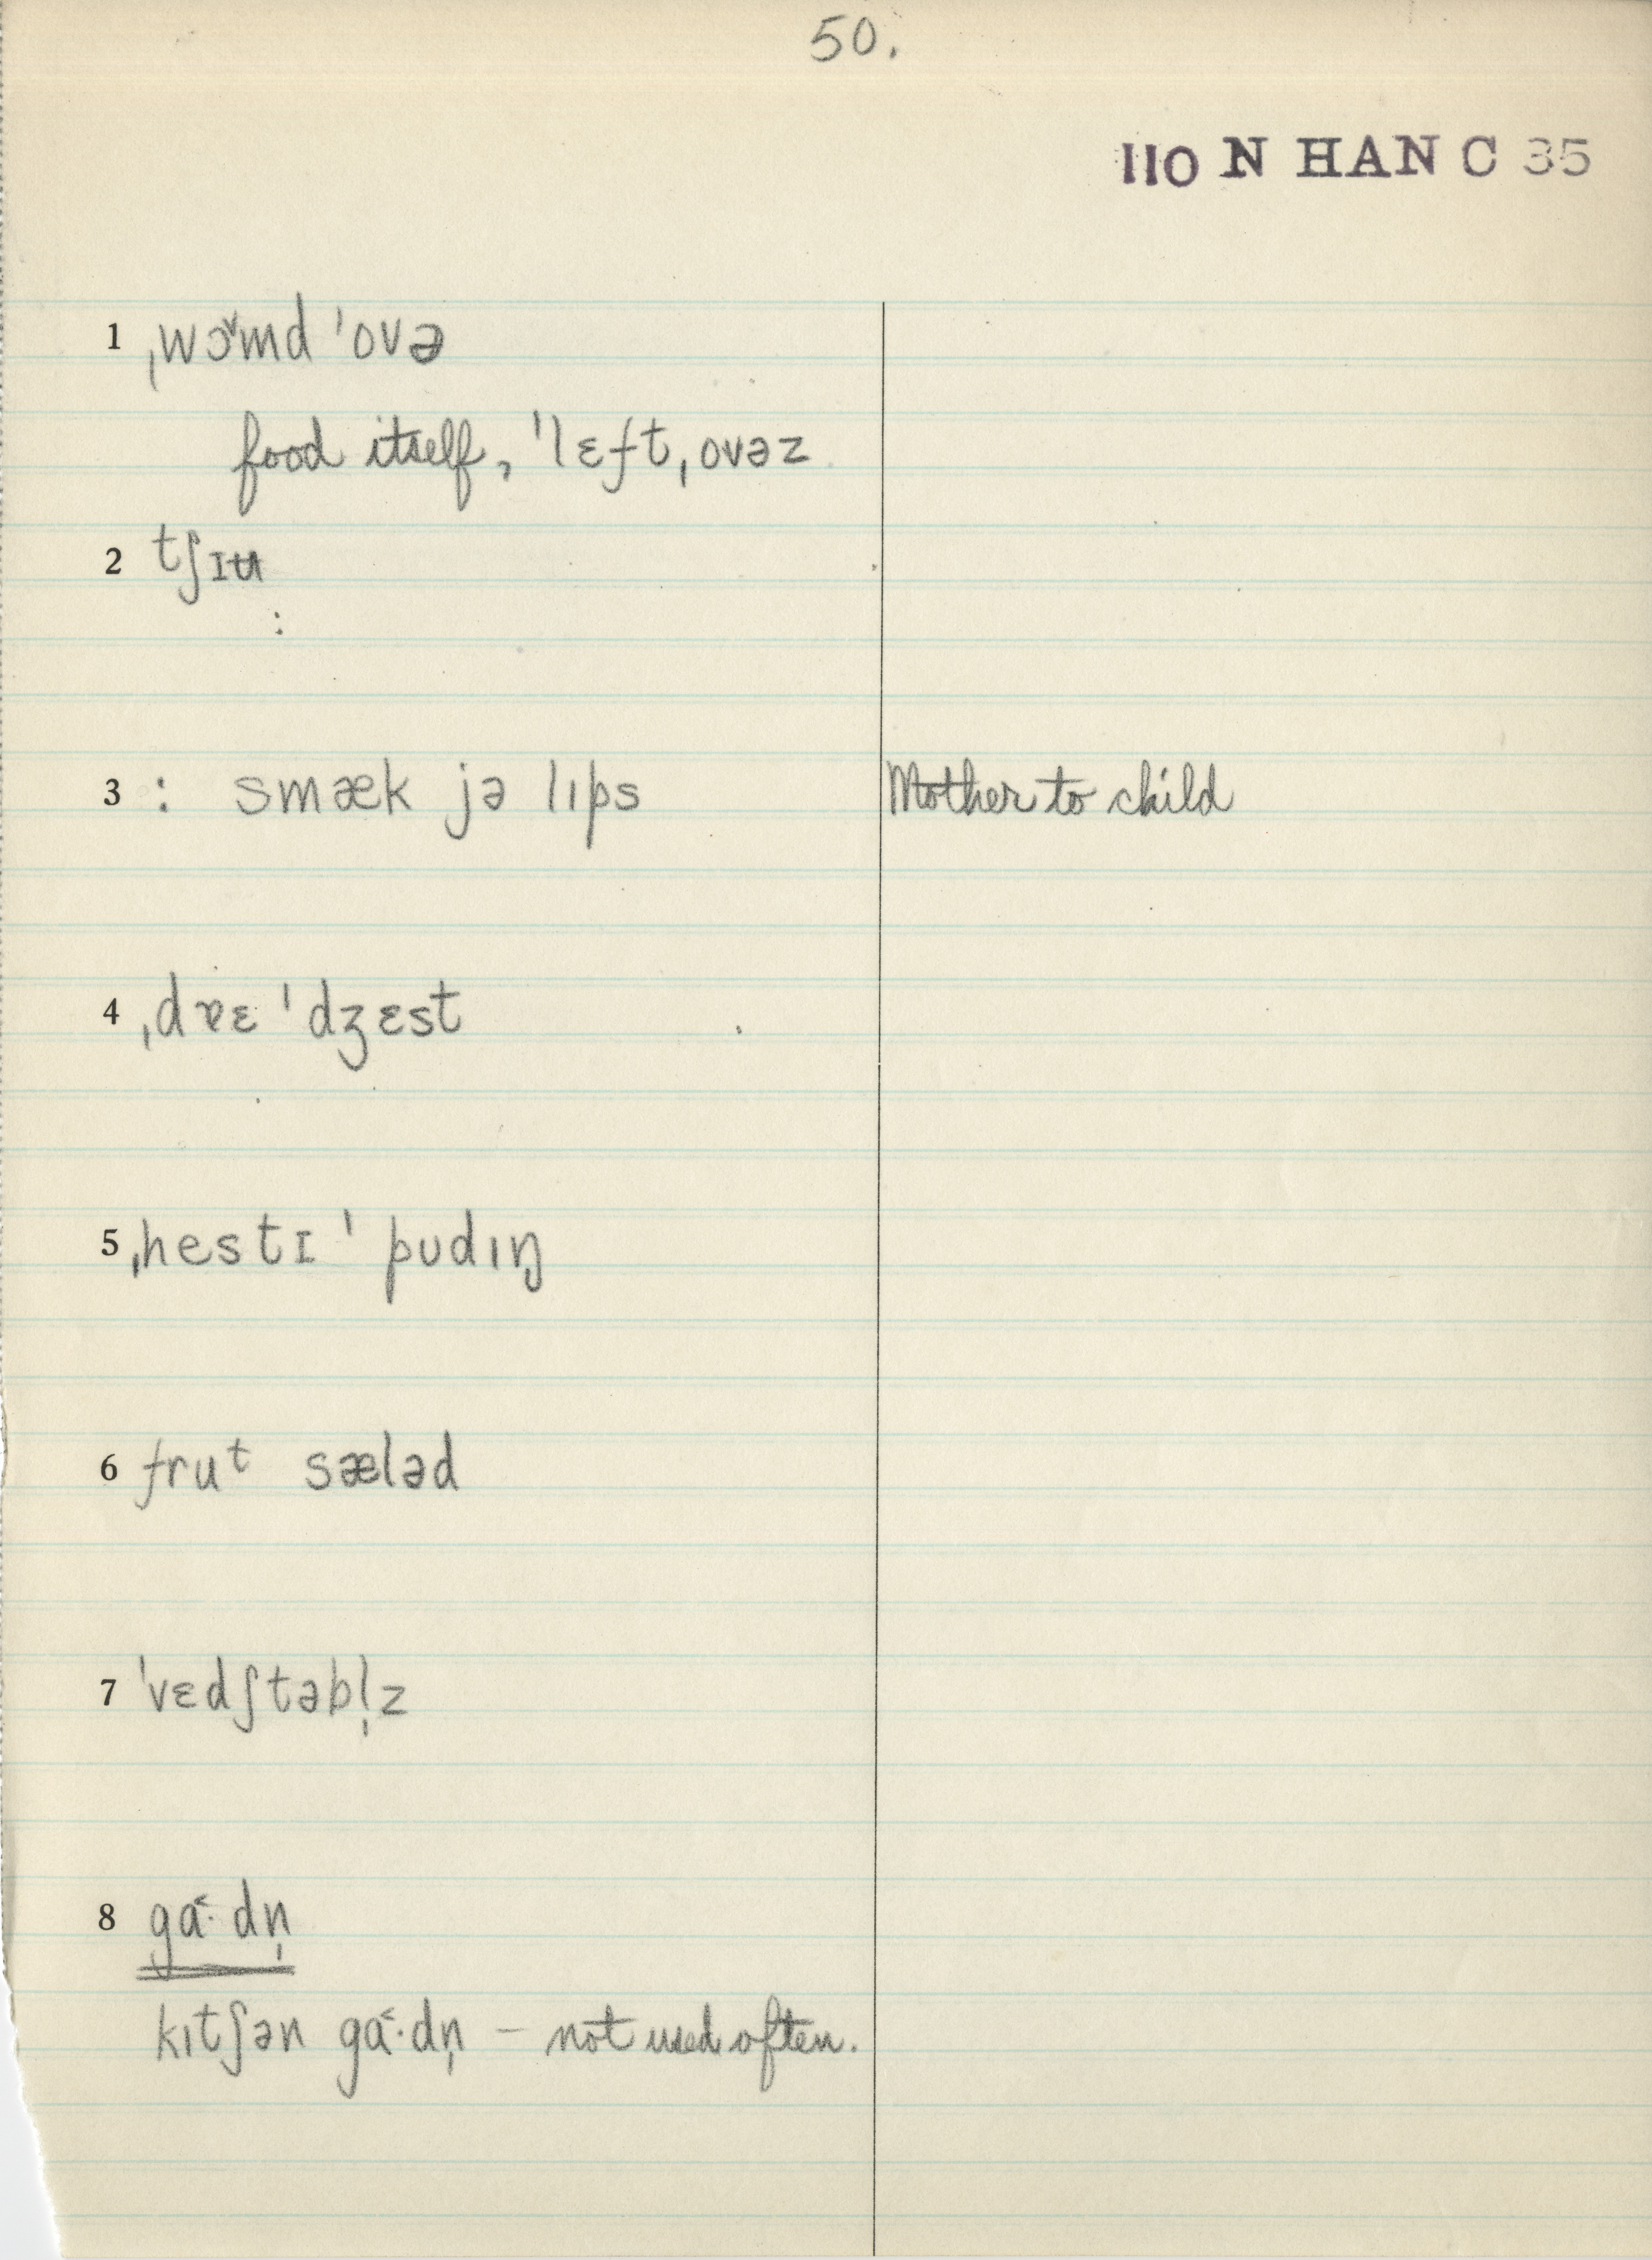 50.
110 N HAN C 35
1 ˌwɔ˅md ˈovə
food itself, ˈlɛft,ovəz
2 tʃɪʉ
:
3 : smæk jə lıps Mother to child
4 ˌdɐɛ ˈdʒɛst
5 ˌhestɪ ˈpudıŋ
6 fruᵗ sæləd
7 ˈvɛdʃtəbl̩z
8 ga˂· dn̩
kıtʃən ga˂·dn̩ – not used often.